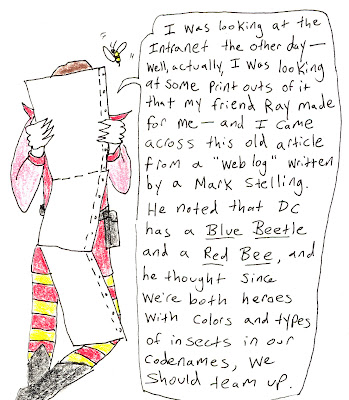 I was looking at the
Intranet the other day—
well, actually, I was looking
at some print outs of it
that my friend Ray made
for me — and I came
across this old article
from a "web log" written
by a Mark Stelling.
He noted that DC
has a Blue Beetle
and a Red Bee, and
he thought since
we're both heroes
with colors and types
of insects in our
codenames, we
should team up.